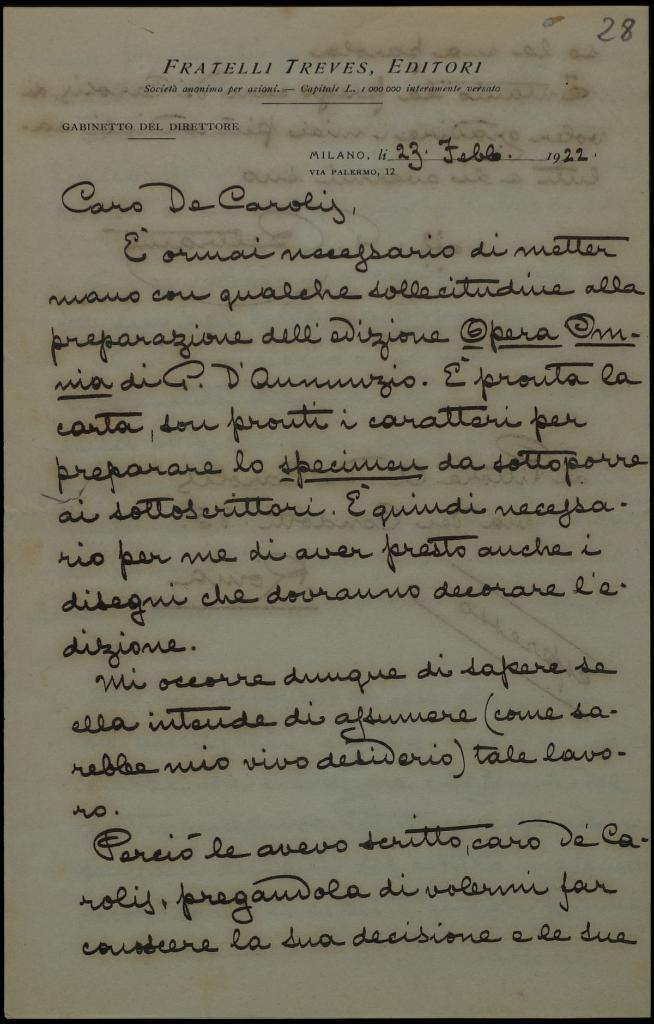 28
FRATELLI TREVES, EDITORI
Società anonima per azioni. — Capitale L. 1 000 000 interamente versato
GABINETTO DEL DIRETTORE
MILANO, li 23. Febb. 1922.
VIA PALERMO, 12
Caro De Carolis,
E' ormai necessario di metter
mano con qualche sollecitudine alla
preparazione dell'edizione Opera Om-
nia di G. D'Annunzio. E' pronta la
carta, son pronti i caratteri per
preparare lo specimen da sottoporre
ai sottoscrittori. E' quindi necessa-
rio per me di aver presto anche i
disegni che dovranno decorare l'e-
dizione.
Mi occorre dunque di sapere se
ella intende di assumere (come sa-
rebbe mio vivo desiderio) tale lavo-
ro.
Perciò le avevo scritto, caro De Ca-
rolis, pregandola di volermi far
conoscere la sua decisione e le sue